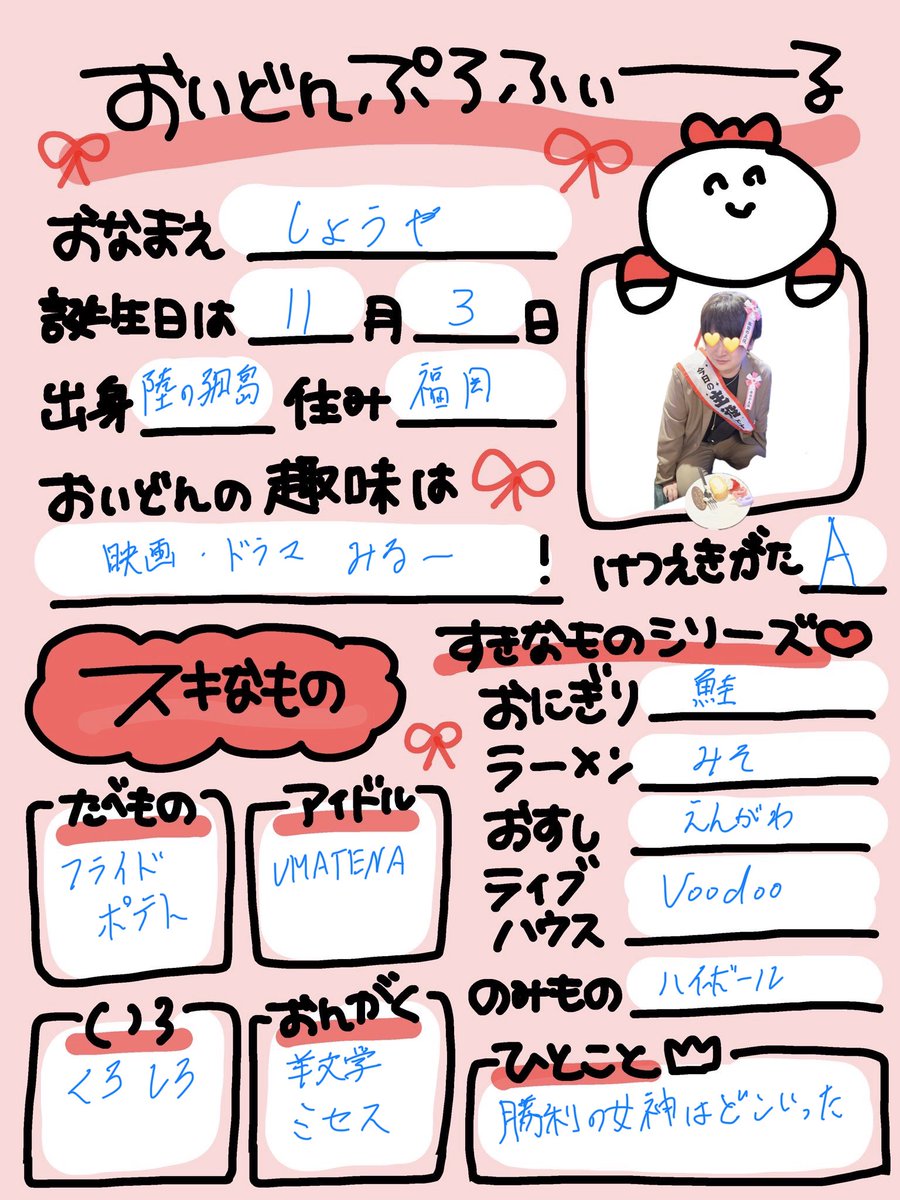 おいどんぷろふぃーる
おなまえ しょうや
誕生日は 11月 3日
出身 陸の孤島 住み 福岡
おいどんの趣味は
映画・ドラマ みるー!
今日の主役
けつえきがた A
スキなもの
たべもの
フライド
ポテト
アイドル
UMATENA
いろ
くろ しろ
おんがく
羊文学
ミセス
すきなものシリーズ
おにぎり 鮭
ラーメン みそ
おすし えんがわ
ライブ
ハウス Voodoo
のみもの ハイボール
ひとこと
勝利の女神はどこいった